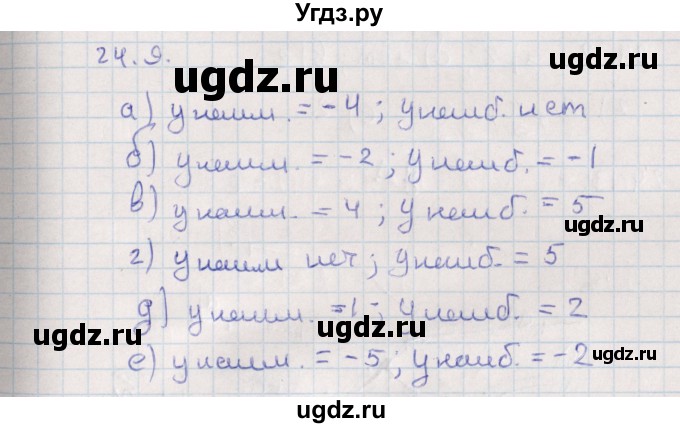 Угдз.ру
24.9.
ugdz.ru
а) y наим. = -4; y наиб. нет
ugdz.ru
б) y наим. = -2; y наиб. = -1
в) y наим. = 4; y наиб. = 5
ugdz.ru
г) y наим нет; y наиб. = 5
д) y наим. =1; y наиб. = 2
ugdz.ru ugdz.ru
е) y наим. = -5; y наиб. = -2
ugdz.ru
ugdz.ru